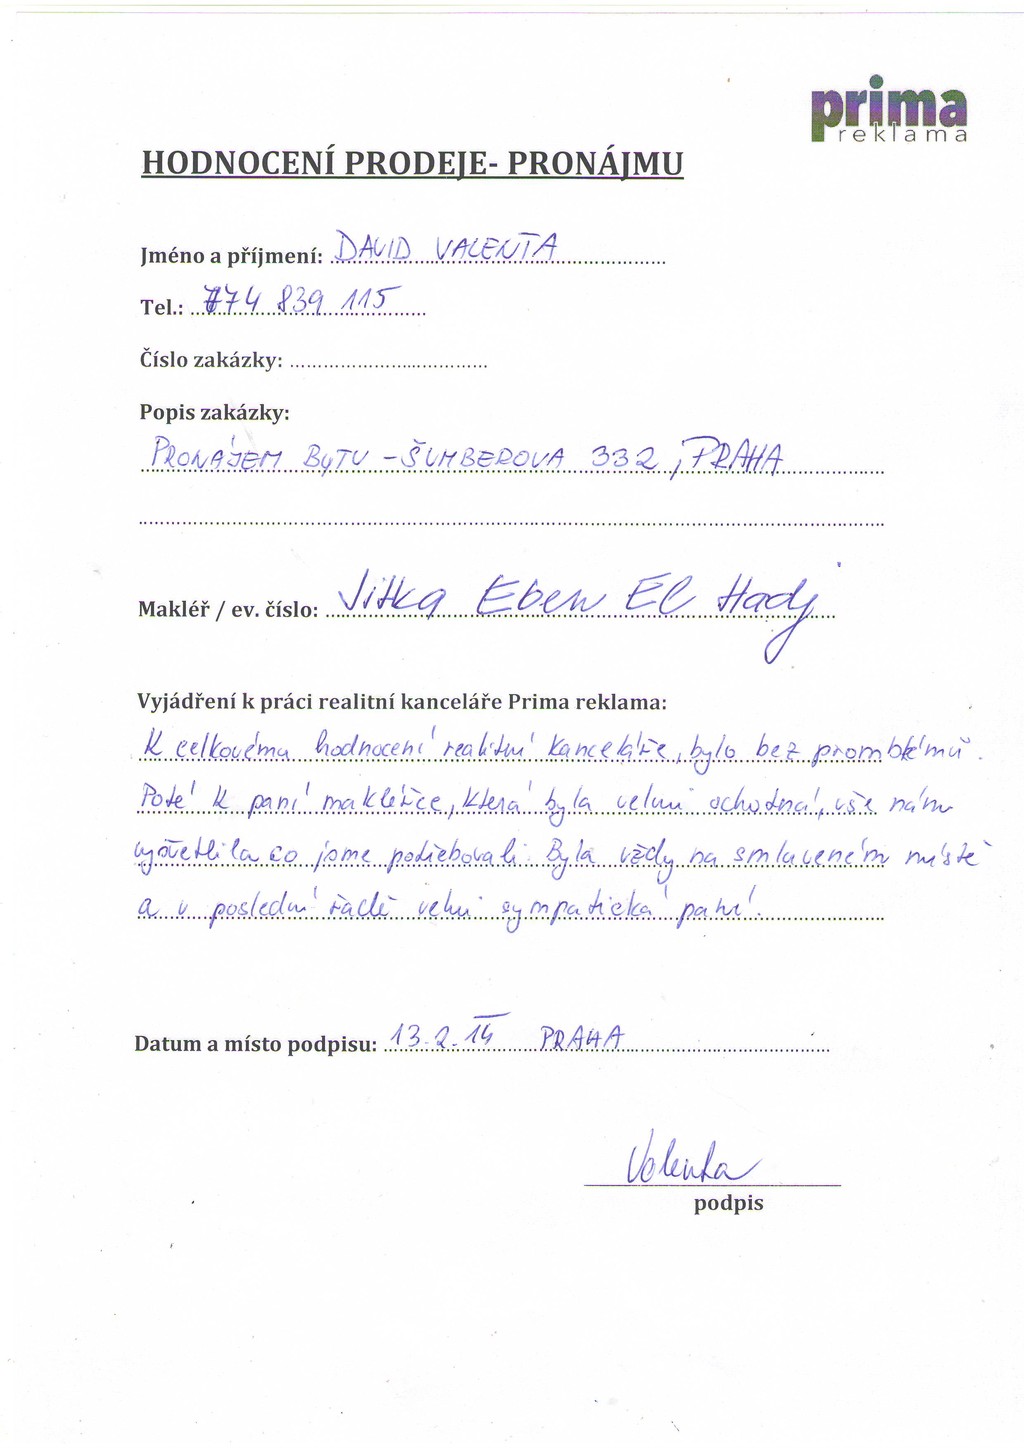 prima
reklama
HODNOCENÍ PRODEJE- PRONÁJMU
Jméno a příjmení: DAVID VALENTA
Tel.: 774 839 115
Číslo zakázky:
Popis zakázky:
PRONÁJEM BYTU - ŠUMBEROVA 332, PRAHA
Makléř / ev. číslo: Jitka Eben El Hadj
Vyjádření k práci realitní kanceláře Prima reklama:
K celkovému hodnocení realitní kanceláře, bylo bez promblémů.
Poté k paní makléřce, která byla velmi ochotná, vše nám
vysvětlila co jsme potřebovali. Byla vždy na smluveném místě
a v poslední řadě velmi sympatická paní.
Datum a místo podpisu: 13.2.14 PRAHA
Valenta
podpis